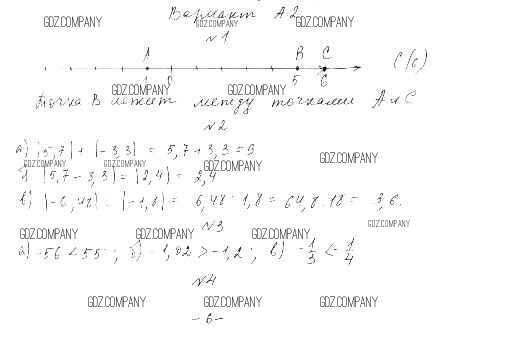 Вариант А2
GDZ.COMPANY GDZ.COMPANY GDZ.COMPANY
№1
A B C C(6)
-1 0 5 6
GDZ.COMPANY GDZ.COMPANY
Точка В лежит между точками А и С
№2
а) |5,7| + |-3,3| = 5,7 + 3,3 = 9
GDZ.COMPANY GDZ.COMPANY GDZ.COMPANY GDZ.COMPANY
б) |5,7 - 3,3| = |2,4| = 2,4
в) |-6,48| : |-1,8| = 6,48 : 1,8 = 64,8 : 18 = 3,6.
№3
GDZ.COMPANY GDZ.COMPANY GDZ.COMPANY GDZ.COMPANY
а) -56 < 55; б) -1,02 > -1,2; в) -1/3 < -1/4
№4
GDZ.COMPANY GDZ.COMPANY GDZ.COMPANY
-6-